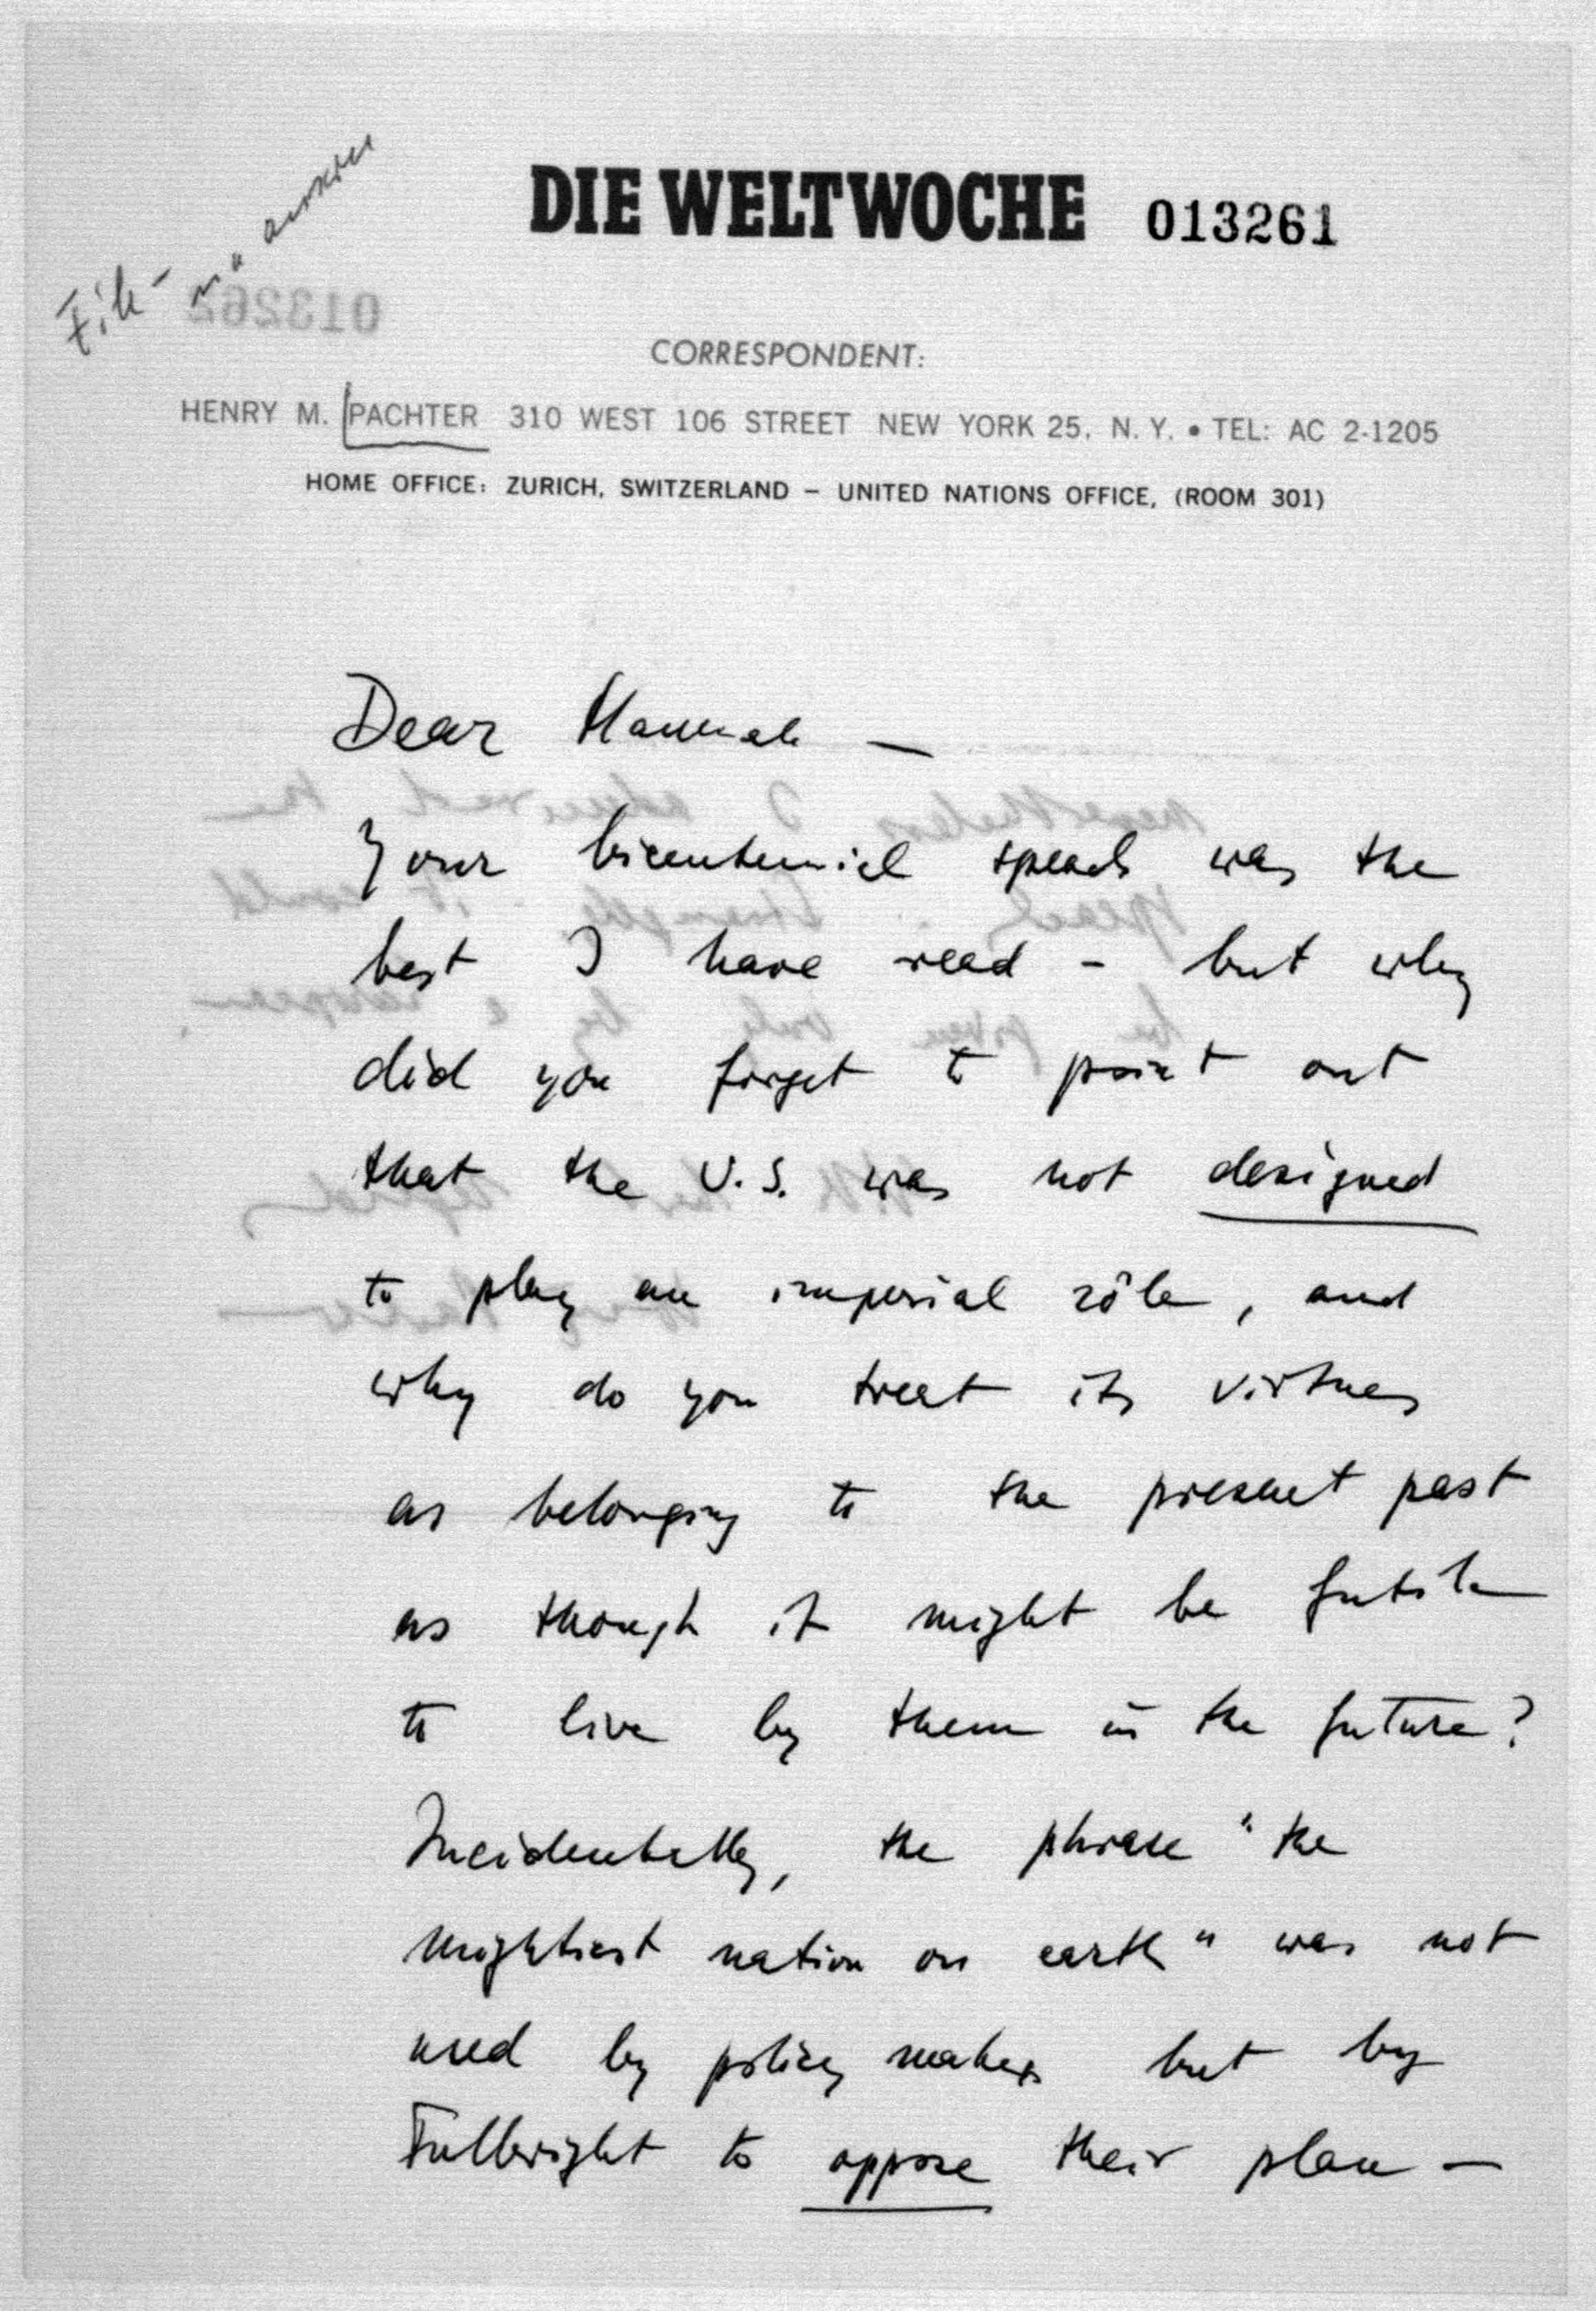 DIE WELTWOCHE 013261
File - no answer
013262
CORRESPONDENT:
HENRY M. PACHTER 310 WEST 106 STREET NEW YORK 25, N. Y. • TEL: AC 2-1205
HOME OFFICE: ZURICH, SWITZERLAND – UNITED NATIONS OFFICE, (ROOM 301)
Dear Hannah —
Your bicentennial speech was the
best I have read - but why
did you forget to point out
that the U.S. was not designed
to play an imperial rôle, and
why do you treat its virtues
as belonging to the present past
as though it might be futile
to live by them in the future?
Incidentally, the phrase "the
mightiest nation on earth" was not
used by policy makers but by
Fullbright to oppose their plan —